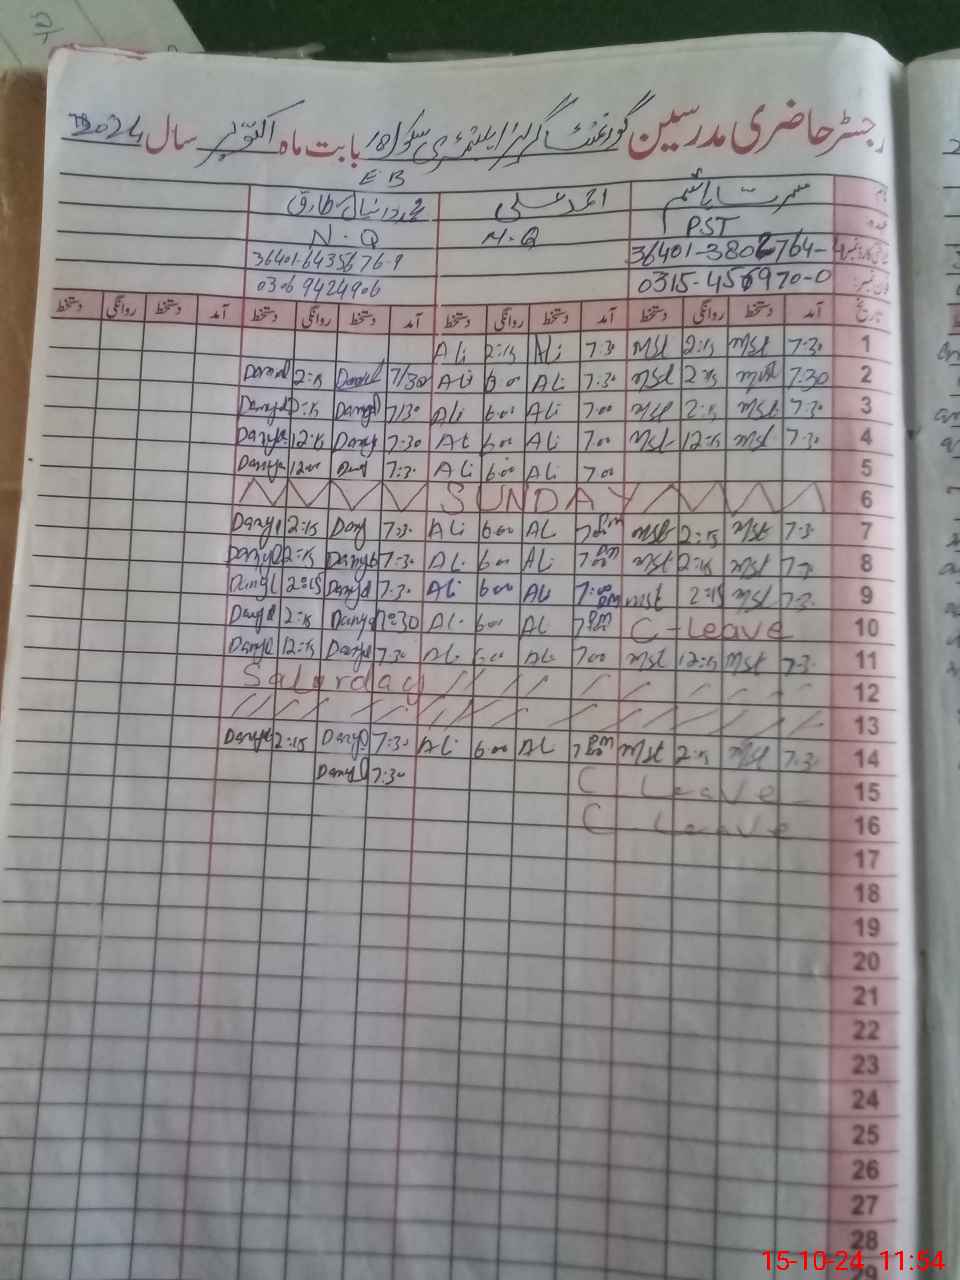 رجسٹر حاضری مدرسین گورنمنٹ گرلز ایلیمنٹری سکول 18/ بابت ماہ اکتوبر سال 2024
EB
مسرت ہاشم احمد علی محمد دانیال طارق
PST N-Q N-Q
36401-6435676-9
0315-456970-0 0306 9424906
تاریخ آمد دستخط روانگی دستخط آمد دستخط روانگی دستخط آمد دستخط روانگی دستخط آمد دستخط روانگی دستخط
Ali 2:15 Ali 7:30 Mst 2:15 Mst 7:30 1
2:15 7/30 Ali 6:00 Ali 7:30 Mst 2:15 Mst 7:30 2
Danyal 2:15 Danyal 7/30 Ali 6:00 Ali 7:00 Mst 2:15 Mst 7:30 3
Danyal 12:15 Dany 7:30 Ali 6:00 Ali 7:00 Mst 12:15 Mst 7:30 4
12:00 7:30 Ali 6:00 Ali 7:00 5
SUNDAY 6
Danyl 2:15 Dany 7:30 ALi 6:00 ALi 7:00 Pm Mst 2:15 Mst 7:30 7
Danyal 2:15 Danyal 7:30 ALi 6:00 ALi 7:00 Pm Mst 2:15 Mst 7:30 8
2:15 Danyal 7:30 ALi 6:00 ALi 7:00 Pm Mst 2:15 Mst 7:30 9
Danyl 2:15 Danyal 7:30 ALi 6:00 ALi 7:00 Pm C-Leave 10
Danyl 12:15 Danyal 7:30 ALi 6:00 ALi 7:00 Mst 12:15 Mst 7:30 11
Saturday 12
13
Danyal 2:15 Danyl 7:30 ALi 6:00 ALi 7:00 Pm Mst 2:15 Mst 7:30 14
Danyl 7:30 C Leave 15
C Leave 16
17
18
19
20
21
22
23
24
25
26
27
28
29
15-10-24 11:54